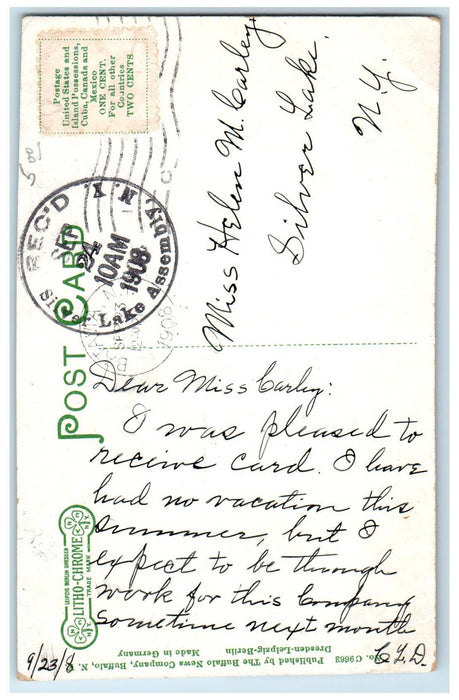 Postage
United States and
Island Possessions,
Cuba, Canada and
Mexico
ONE CENT.
For all other
Countries
TWO CENTS
5.00
REC'D
24
10AM
1908
N.Y.
Silver Lake Assembly,
1908
Miss Helen M. Carley
Silver Lake.
N.Y.
POST CARD
Dear Miss Carley:
I was pleased to
receive card. I have
had no vacation this
summer, but I
expect to be through
work for this Company
sometime next month
C.L.D.
9/23/8
LEIPZIG BERLIN DRESDEN
LITHO-CHROME
TRADE MARK
No. C 9663 Published by The Buffalo News Company, Buffalo, N.
Dresden-Leipzig-Berlin
Made in Germany